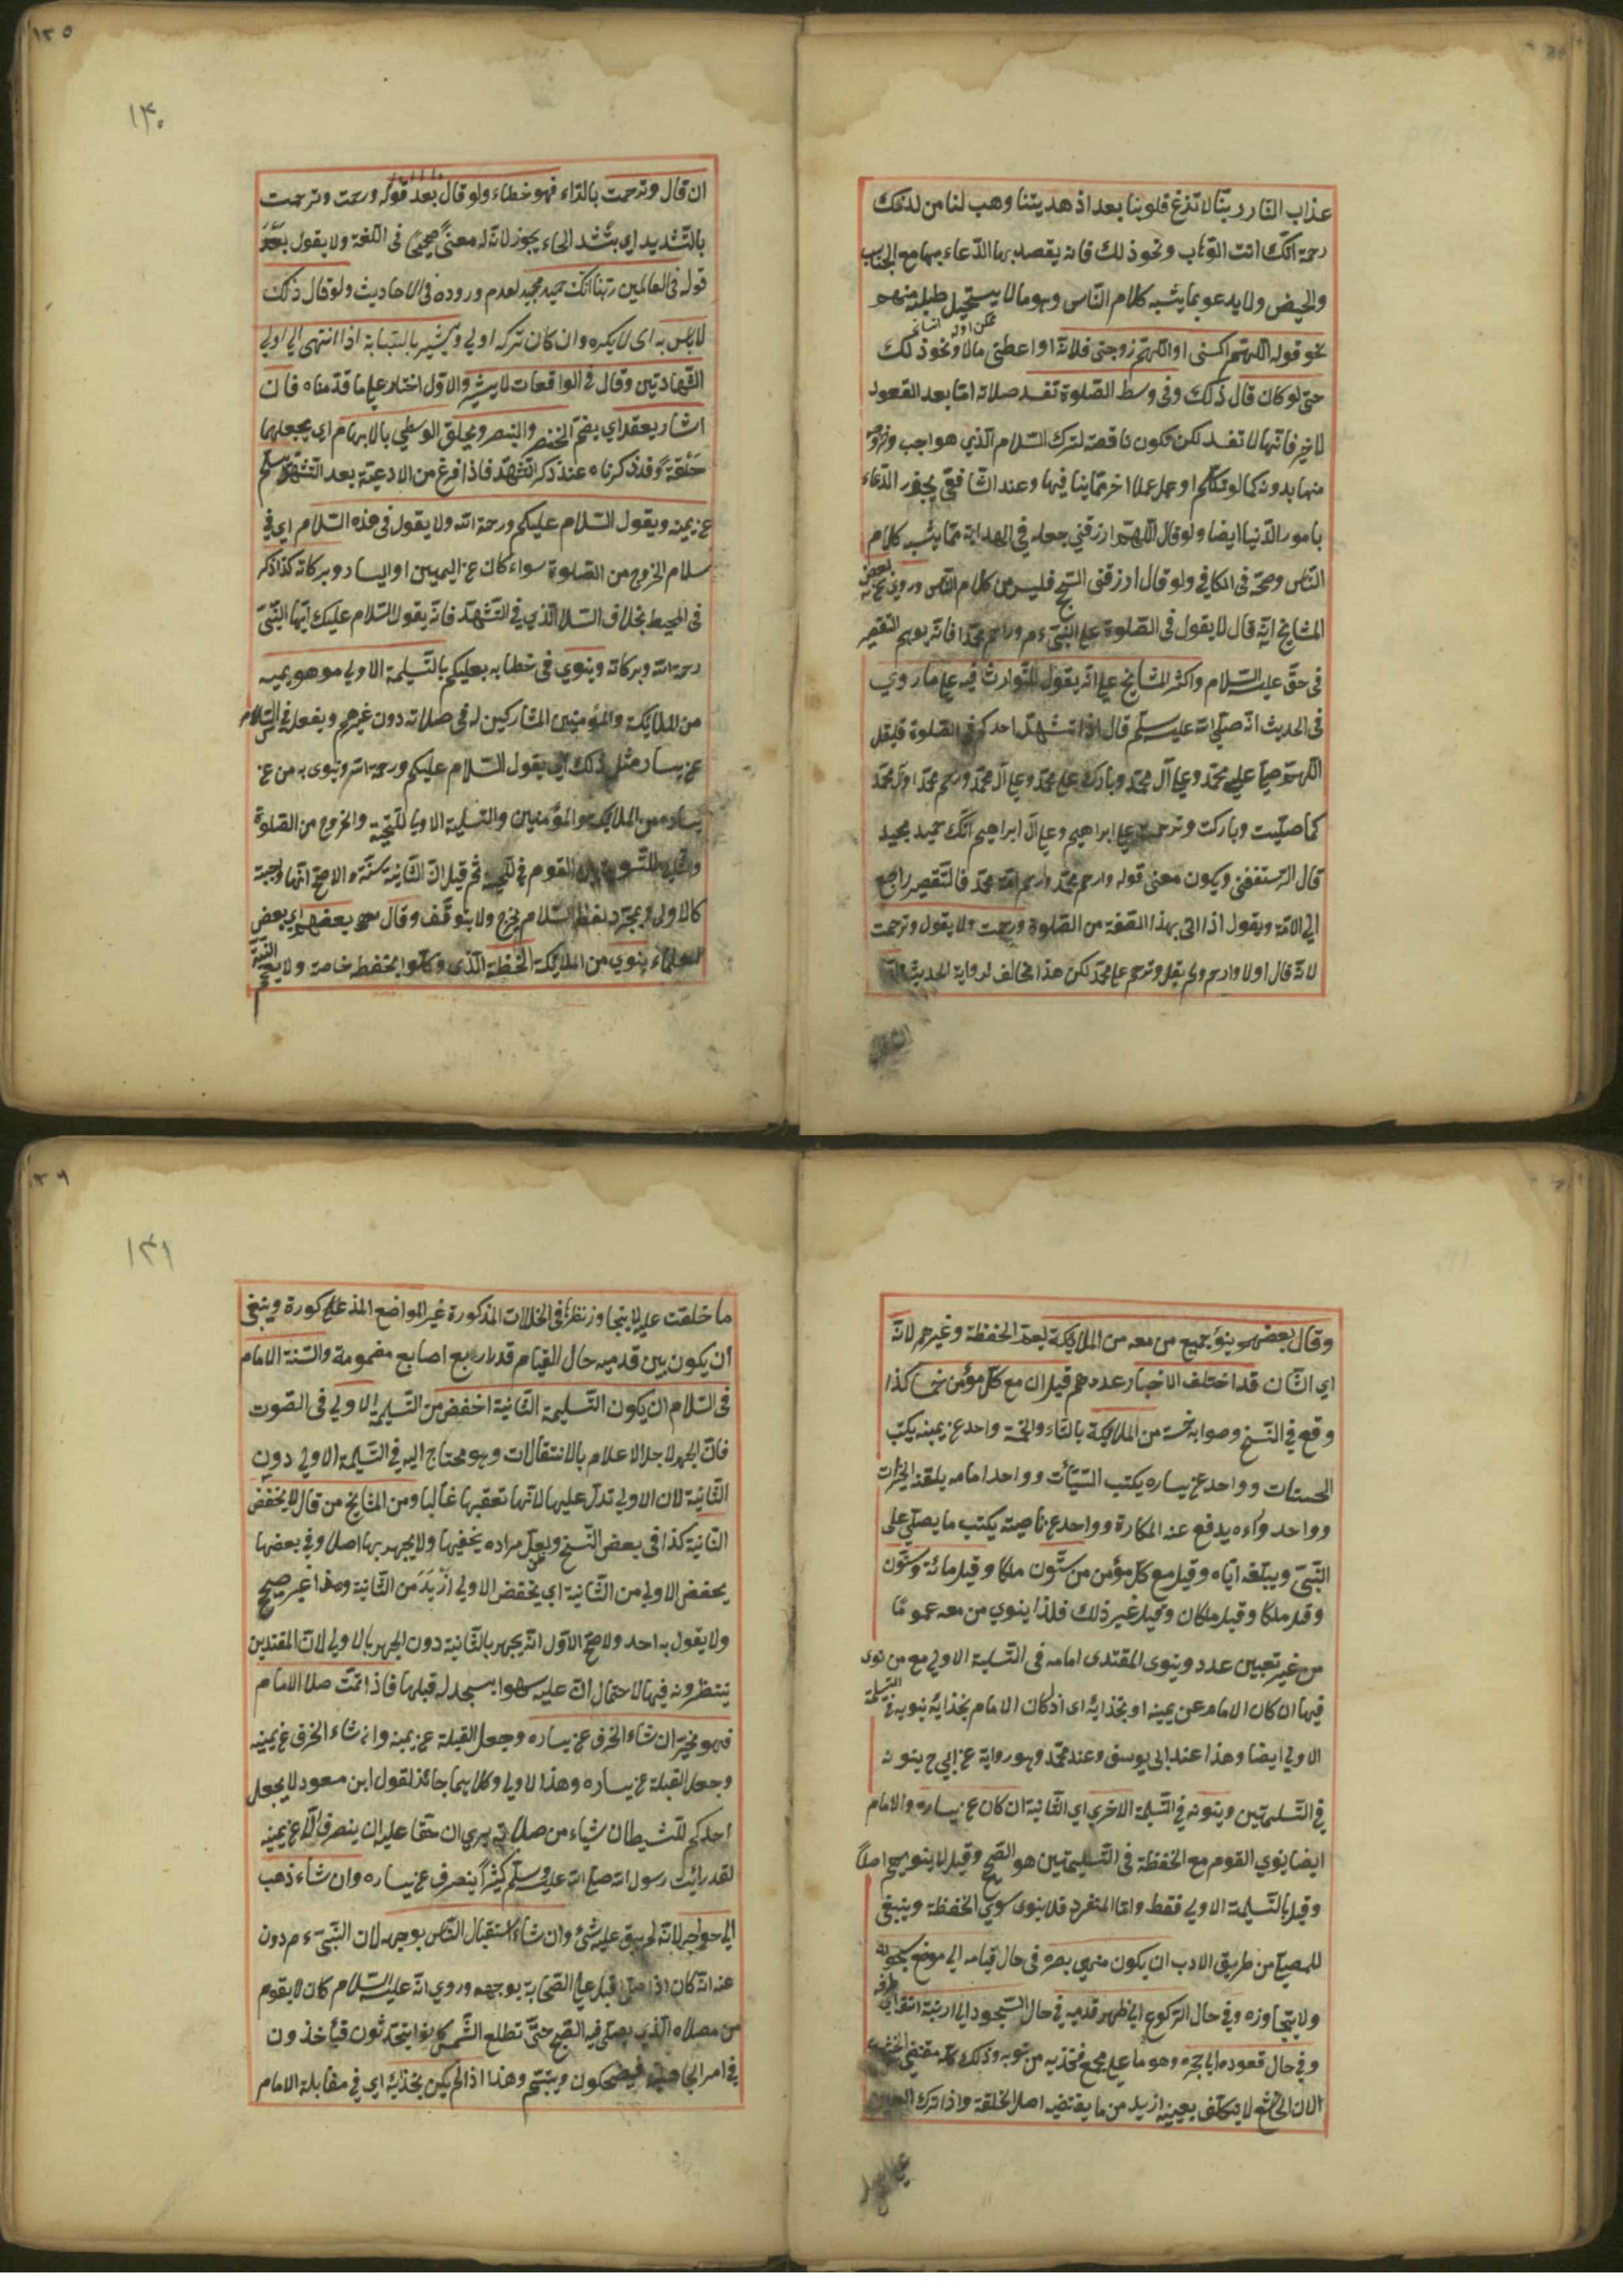 عذاب النار ربنا لا تزغ قلوبنا بعد اذ هديتنا وهب لنا من لدنك
رحمة انك انت الوهاب ونحو ذلك فانه يقصد بها الدعاء بها مع الجنب
والحيض ولا يدعو بما يشبه كلام الناس وهو ما لا يستحيل طلبه منهم
نحو قوله اللهم اكسنى او اللهم زوجنى فلانة او اعطنى مالا ونحو ذلك
حتى لو كان قال ذلك وفى وسط الصلوة تفسد صلاته اما بعد القعود
لاخير فانها لا تفسد لكن فتكون ناقصة لترك السلام الذي هو واجب وخروجه
منها بدونه كما لو تكلم او عمل عملا اخر مما ينافيها وعند الشافعي يجوز الدعاء
بامور الدنيا ايضا ولو قال اللهم ارزقني جعله في الهداية مما يشبه كلام
الناس وصحه فى الكافي ولو قال ارزقنى الحج فليس من كلام الناس وروى عن بعض
المشايخ انه قال لا يقول فى الصلوة على النبى ءم وارحم محمدا فانه يوهم التقصير
فى حق عليه السلام واكثر المشايخ على انه يقول للتوارث فيه على ما روي
فى الحديث انه صلى الله عليه سلم قال اذا تشهد احدكم فى الصلوة فليقل
اللهم صل على محمد وعلى آل محمد وبارك على محمد وعلى آل محمد وارحم محمدا وآل محمد
كما صليت وباركت وترحمت على ابراهيم وعلى آل ابراهيم انك حميد مجيد
قال الرستغفنى ويكون معنى قوله وارحم محمد وارحم امة محمد فالتقصير راجع
الى الامة ويقول اذا اتى بهذا الصفة من الصلوة ورحمت ولا يقول وترحمت
لانه قال اولا وارحم ولم يقل وترحم على محمد لكن هذا مخالف لرواية الحديث
ان قال وترحمت بالراء فهو خطاء ولو قال بعد قوله ورحمت وترحمت
بالتشديد اي بتشد الحاء يجوز لانه له معنى صحيحا فى اللغة ولا يقول بعد
قوله فى العالمين ربنا انك حميد مجيد لعدم وروده فى الاحاديث ولو قال ذلك
لا باس به اى لا يكره وان كان تركه اولى ويشير بالسبابة اذا انتهى الى اولى
الشهادتين وقال في الواقعات لا يشير والاول اختار على ما قدمناه فان
اشار يعقد اي يضم الخنصر والبنصر ويحلق الوسطي بالابهام اي يجعلهما
حلقة وقد ذكرناه عند ذكر التشهد فاذا فرغ من الادعية بعد التشهد يسلم
عن يمينه ويقول السلام عليكم ورحمة الله ولا يقول فى هذه السلام اي في
سلام الخروج من الصلوة سواء كان عن اليمين او اليسار وبركاته كذا ذكر
فى المحيط بخلاف السلا الذي في التشهد فانه يقول السلام عليك ايها النبى
رحمة الله وبركاته وينوي فى خطابه بعليكم بالتسليمة الاولى من هو يمينه
من الملائكة والمؤمنين المشاركين له فى صلاته دون غيرهم ويفعل في السلام
عن يساره مثل ذلك اي يقول السلام عليكم ورحمة الله وينوى به من عن
يساره من الملائكة والمؤمنين والتسليمة الاولى للتحية والخروج من الصلوة
والثانية للتسوية بين القوم في التحية ثم قيل ان الثانية سنة والاصح انها واجبة
كالاولى وبمجرد لفظ السلام يخرج ولا يتوقف وقال بعضهم اي بعض
العلماء ينوي من الملائكة الحفظة الذى وكلوا بحفظه خاصة ولا يعم
وقال بعضهم ينوي جميع من معه من الملائكة بعد الحفظة وغيرهم لانه
اي الشان قد اختلف الاخبار عددهم قيل ان مع كل مؤمن خمسا كذا
وقع في النسخ وصوابه خمسة من الملائكة بالتاء والخمسة واحد عن يمينه يكتب
الحسنات وواحد عن يساره يكتب السيئات وواحد امامه يلقنه الخيرات
وواحد وراءه يدفع عنه المكارة وواحد عن ناصيته يكتب ما يصلى على
النبى ويبلغه اياه وقيل مع كل مؤمن من ستون ملكا وقيل مائة وستون
وقيل ملكا وقيل ملكان وقيل غير ذلك فلذا ينوي من معه عموما
من غير تعيين عدد وينوى المقتدى امامه فى التسلية الاولى مع من نوى
فيها ان كان الامام عن يمينه او بحذايه اى اذا كان الامام بحذايه ينويه في التسليمة
الاولى ايضا وهذا عند ابى يوسف وعند محمد وهو رواية عن ابي ح ينونه
في التسليمتين وينويه في التسليمة الاخرى اي الثانية ان كان عن يساره والامام
ايضا ينوي القوم مع الحفظة فى التسليمتين هو الصحيح وقيل لا ينويهم اصلاً
وقيل بالتسليمة الاولى فقط واما المنفرد فلا ينوى سوي الحفظة وينبغى
للمصلى من طريق الادب ان يكون منتهى بصره فى حال قيامه الى موضع سجوده
ولا يتجاوزه وفي حال الركوع الى ظهر قدميه في حال السجود الى ارنبة انفه
وفي حال قعوده الى حجره وهو ما على مجمع فخذيه من ثوبه وذلك كله مقتضى الخشوع
لان الخاشع لا يتكلف بعينه ازيد من ما يقتضيه اصل الخلقة واذا ترك العين
ما خلقت عليه لا يتجاوز نظرها فى الخلات المذكورة غير المواضع المذكورة وينبغى
ان يكون بين قدميه حال القيام قدر اربع اصابع مضمومة والسنة الامام
فى السلام ان يكون التسليمة الثانية اخفض من التسليمة الاولى فى الصوت
فان الجهر لاجل الاعلام بالانتقالات وهو محتاج اليه في التسليمة الاولى دون
الثانية لان الاولى تدل عليها لانها تعقبها غالبا ومن المشايخ من قال لا يخفض
الثانية كذا فى بعض النسخ ولعل مراده يخفيها ولا يجهر بها اصلا وفي بعضها
يخفض الاولى من الثانية اي يخفض الاولى ازيد من الثانية وهذا غير صحيح
ولا يقول به احد والاصح الاول انه يجهر بالثانية دون الجهر بالاولى لان المقتدين
ينتظرونه فيها لاحتمال ان عليه سهوا يسجد له قبلها فاذا تمت صلا الامام
فهو مخير ان شاء انحرف عن يساره وجعل القبلة عن يمينه وان شاء انحرف عن يمينه
وجعل القبلة عن يساره وهذا لاولى وكلاهما جائز لقول ابن مسعود لا يجعل
احدكم للشيطان شياء من صلاته يرى ان حقا عليه ان ينصرف الا عن يمينه
لقد رايت رسول الله صلى الله عليه وسلم كثيرا ينصرف عن يساره وان شاء ذهب
الى حوايجه لانه لم يبق عليه شئ وان شاء استقبال الناس بوجهه لان النبى ءم دون
عنه انه كان اذا صلى اقبل على الصحابة بوجهه وروي انه عليه السلام كان لا يقوم
من مصلاه الذى يصلى فيه الصبح حتى تطلع الشمس كانوا يتحدثون فيأخذون
في امر الجاهلية فيضحكون ويبتسم وهذا اذا لم يكن بحذايه اي في مقابلة الامام